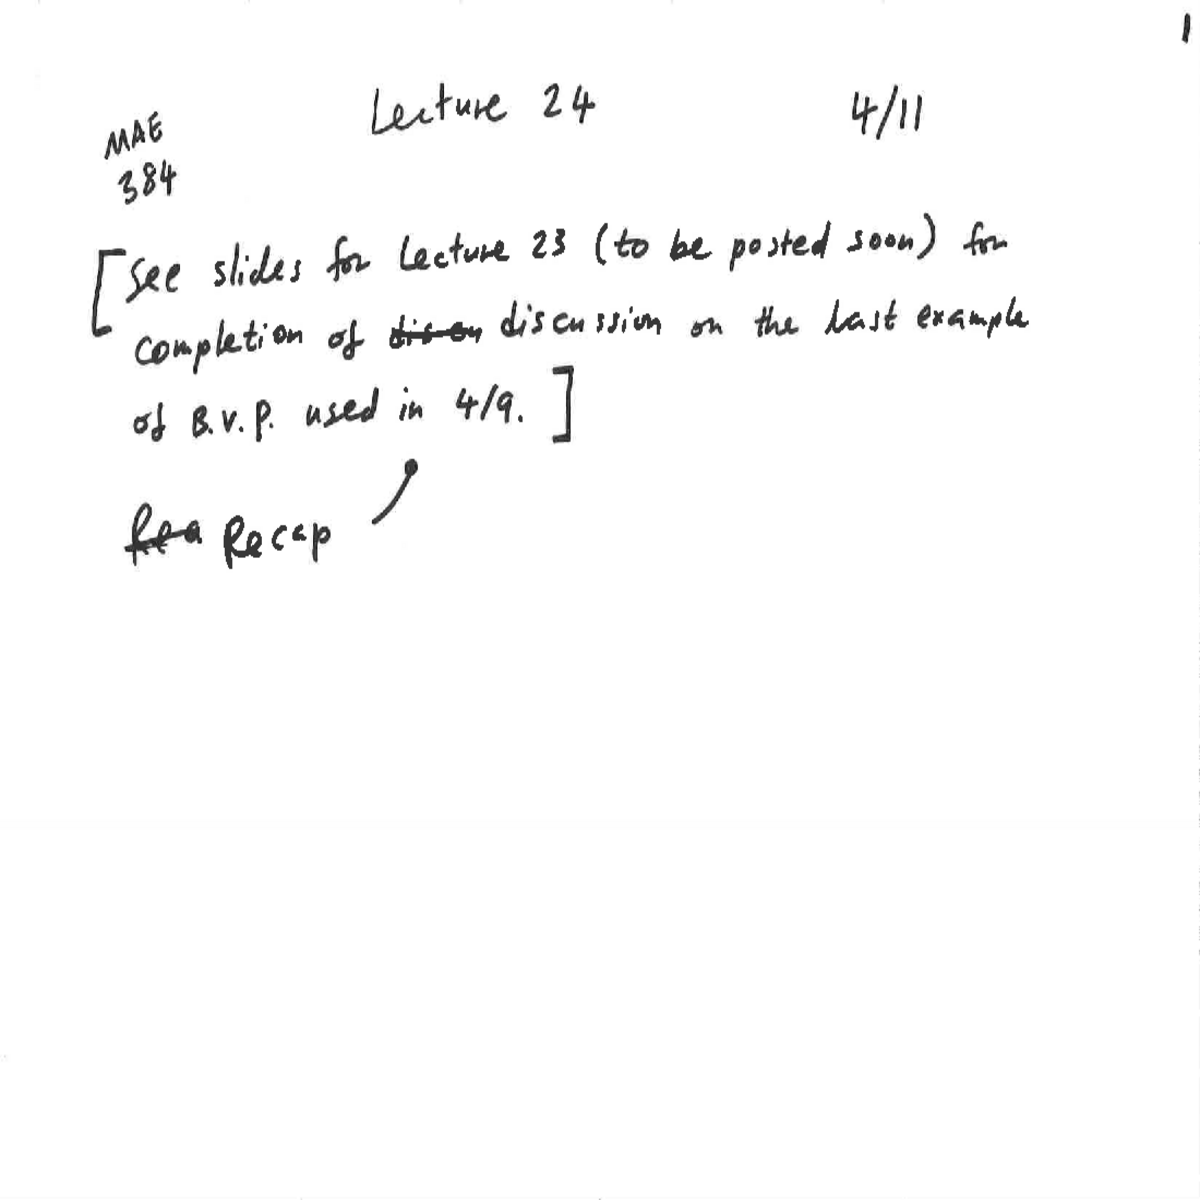 1
MAE Lecture 24 4/11
384
[See slides for Lecture 23 (to be posted soon) for
completion of discussion on the last example
of B.V.P. used in 4/9.]
Recap